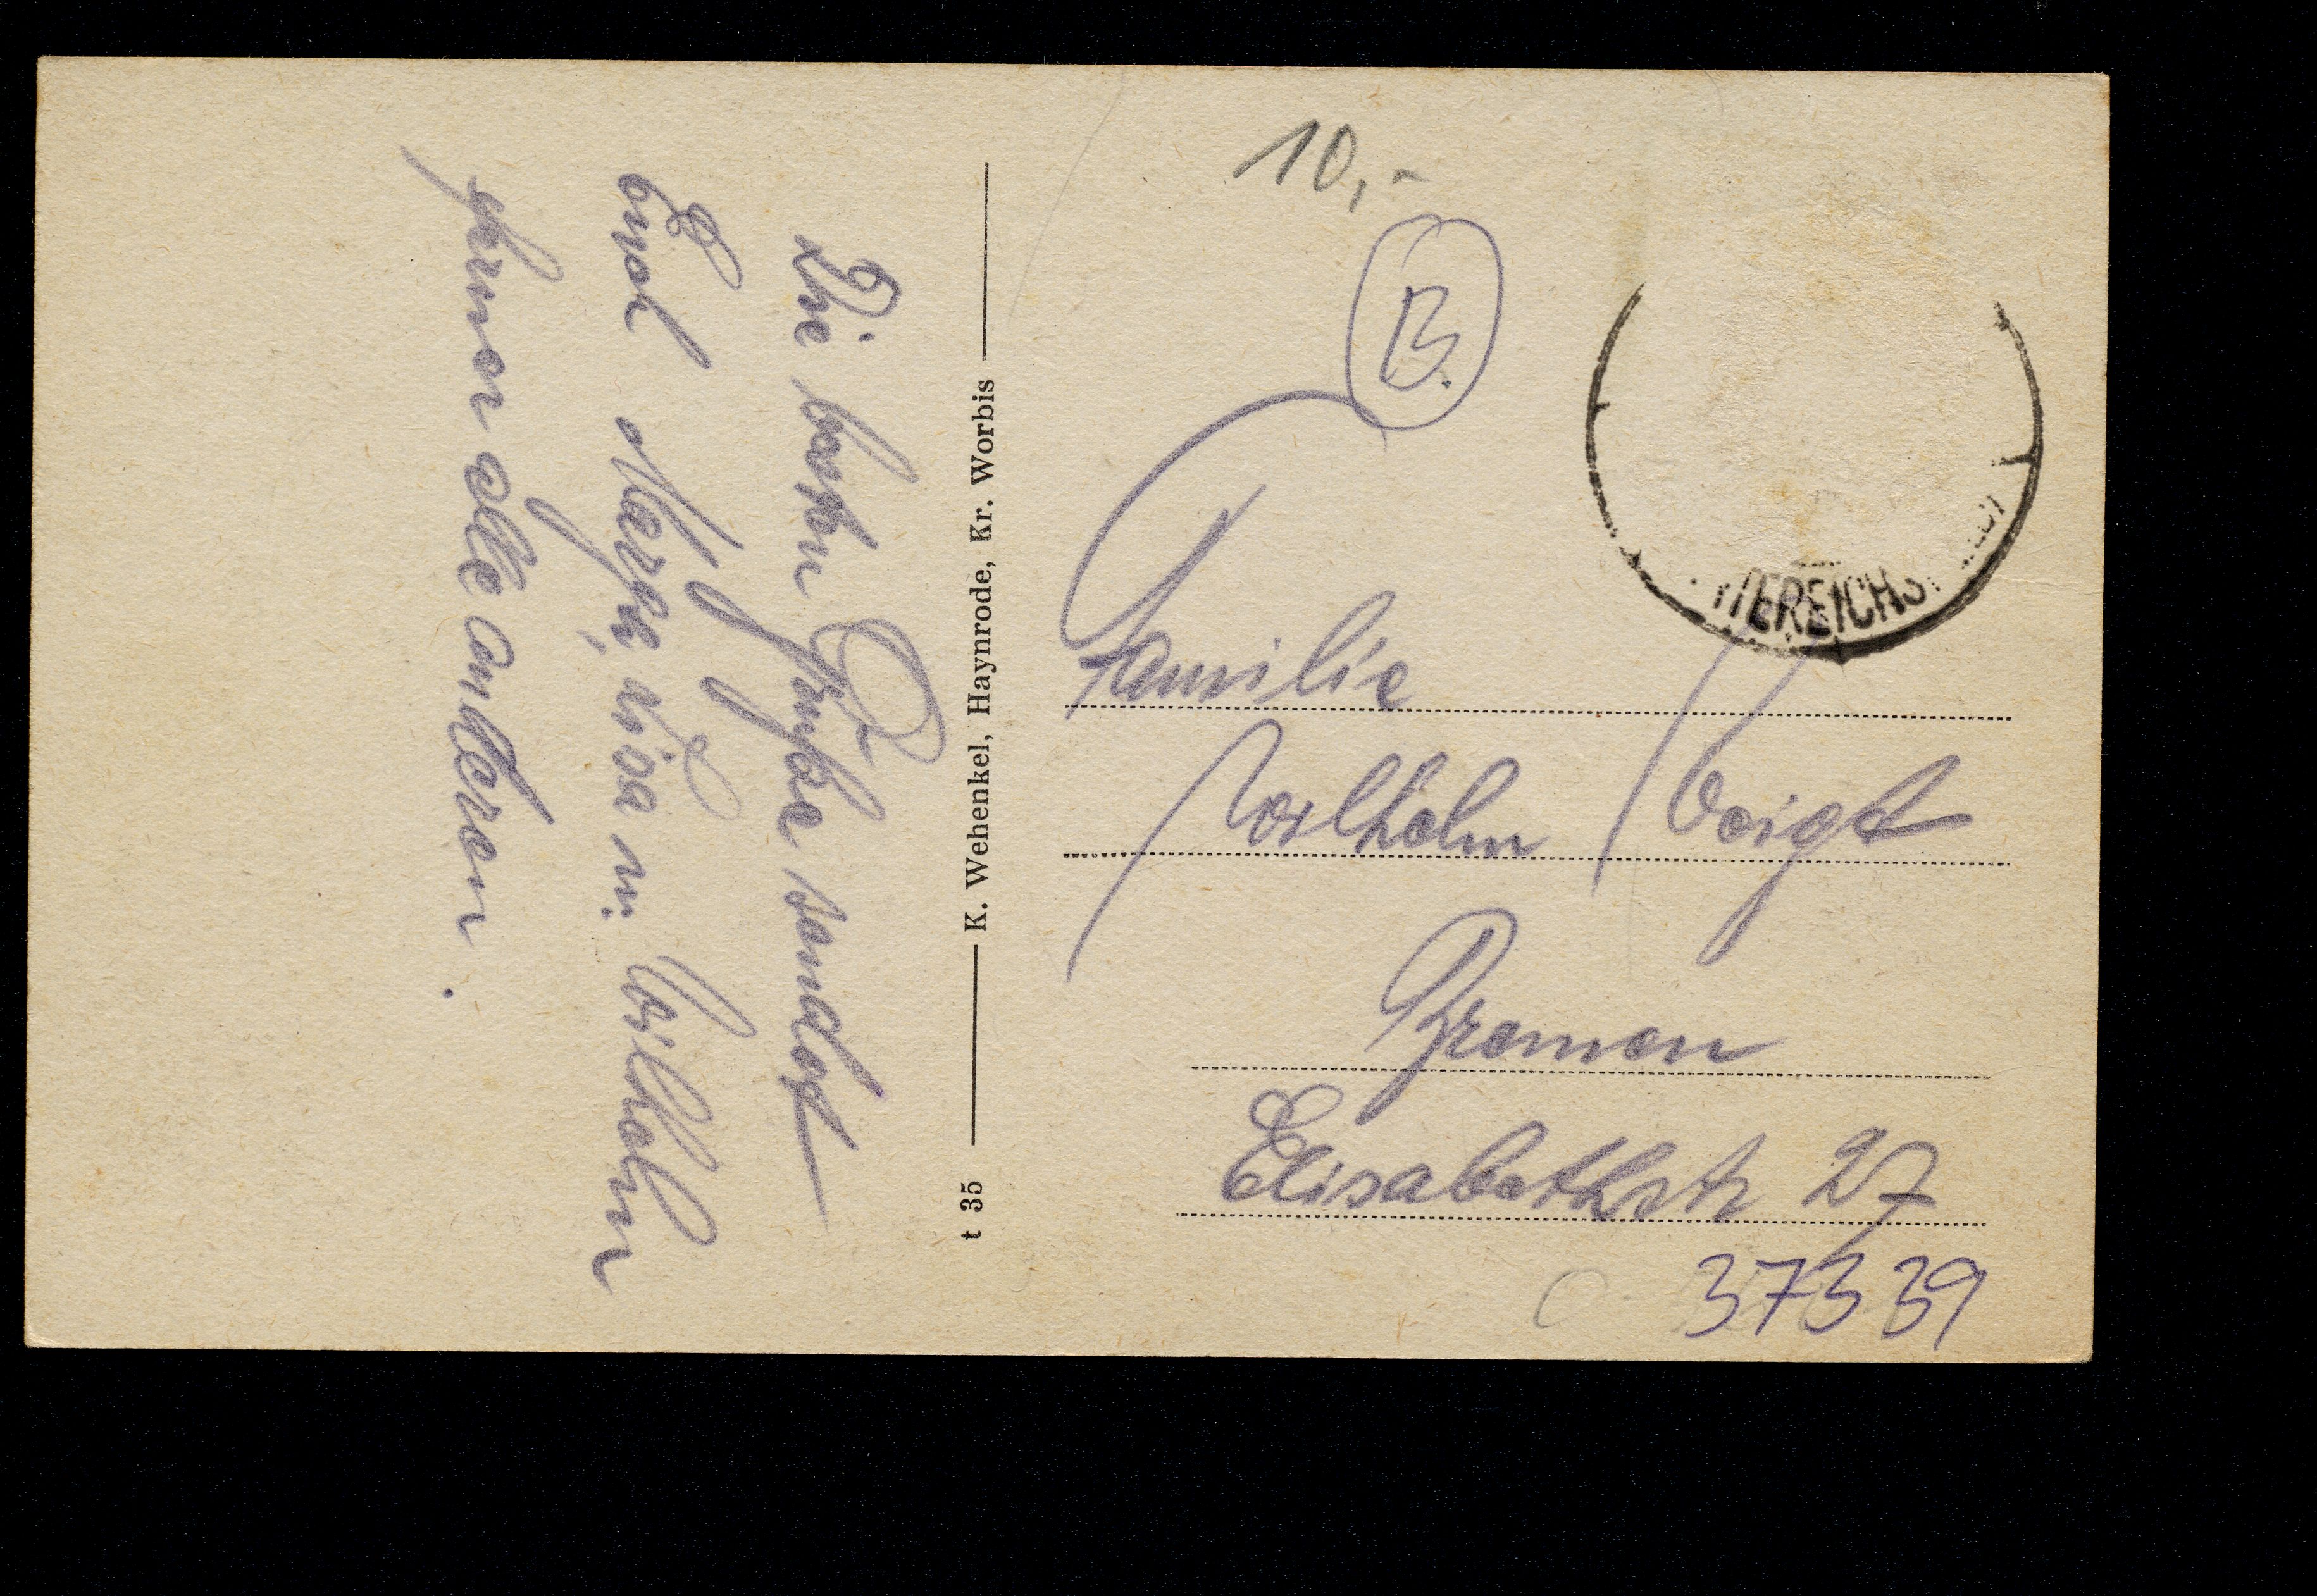 Die besten Grüße sendet
Euch
Wilhelm
ferner alle anderen.
t 35 K. Wehenkel, Haynrode, Kr. Worbis
10,-
B.
Familie
Wilhelm Voigt
Bremen
Elisabethstr 27
37339